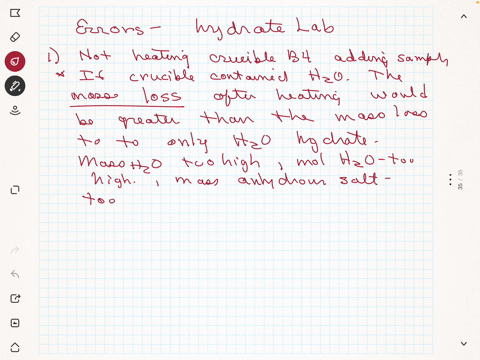 Errors - Hydrate Lab
1) Not heating crucible B4 adding sample
* If crucible contained H2O. The
mass loss after heating would
be greater than the mass loss
to to only H2O hydrate.
Mass H2O too high, mol H2O - too
high., mass anhydrous salt -
too
35 / 35